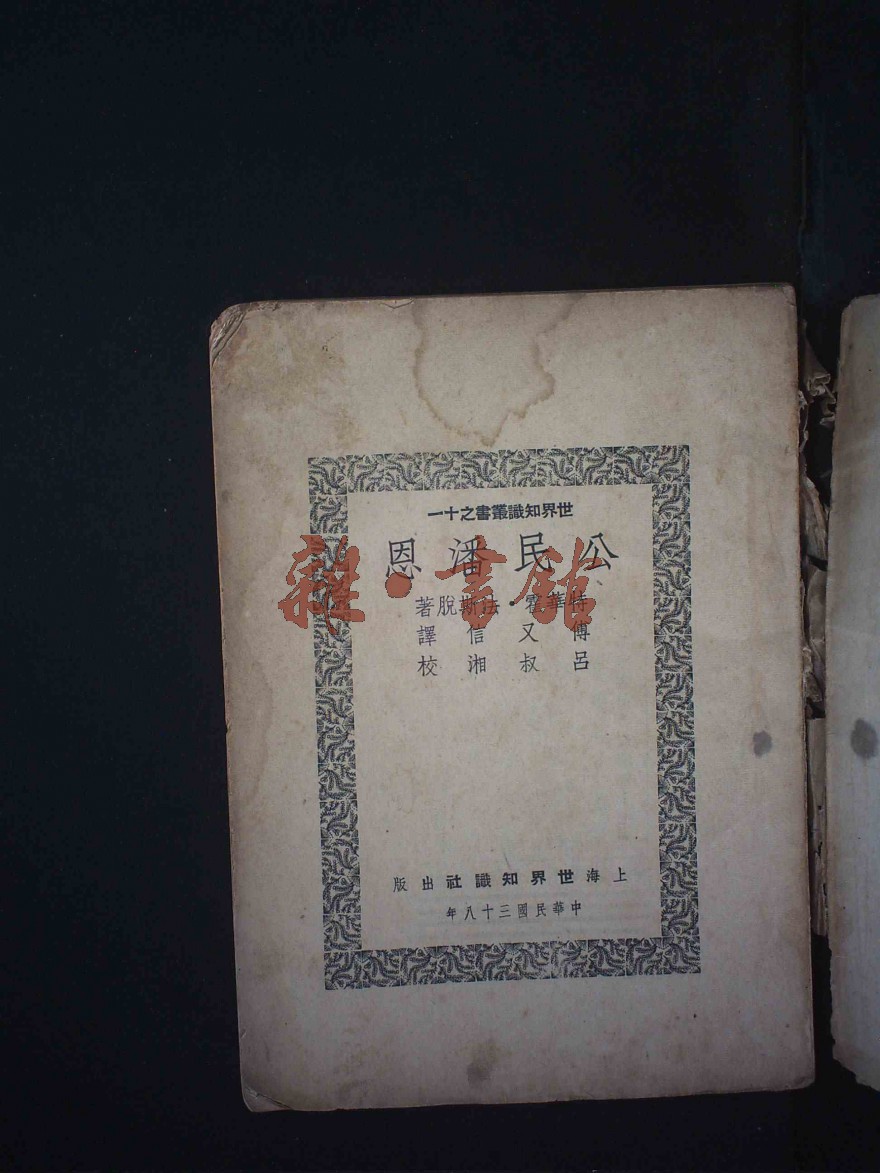 世界知識叢書之十一
公民潘恩
特華霍·法斯脫著
傅又信譯
呂叔湘校
上海世界知識社出版
中華民國三十八年
雜·書館